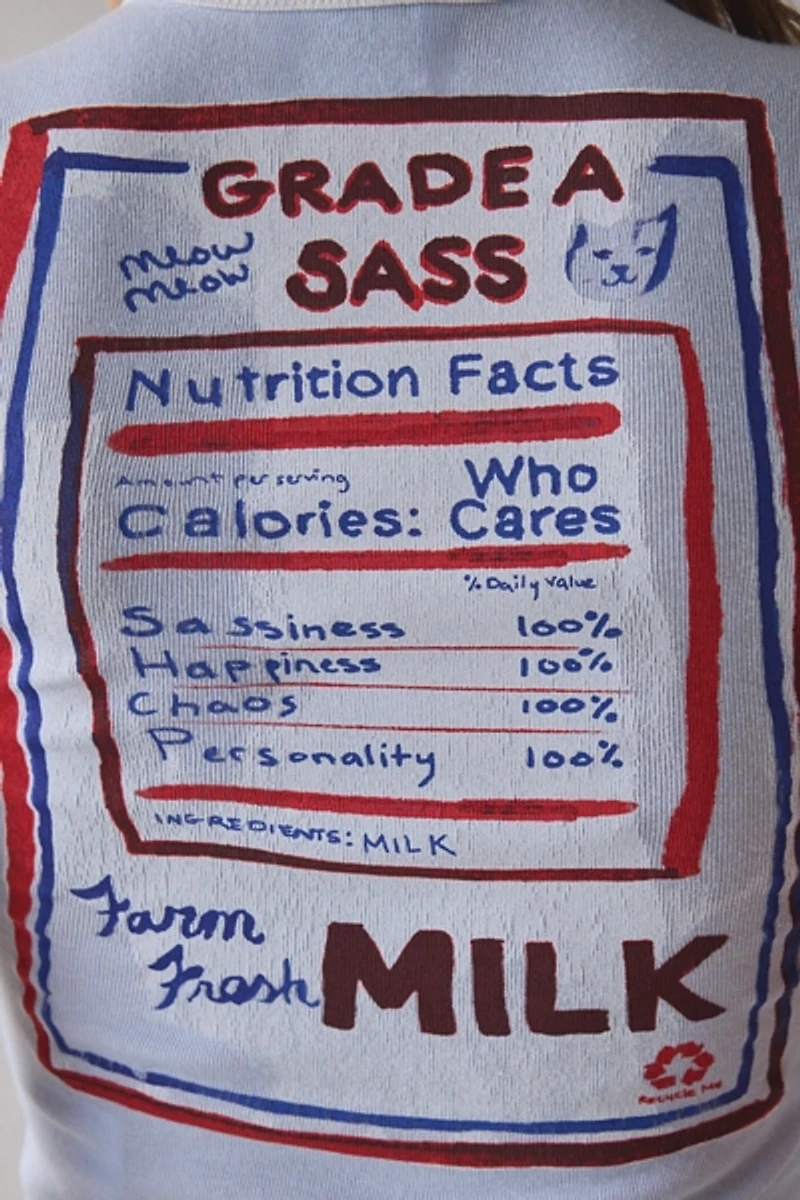 GRADE A
meow
meow
SASS
Nutrition Facts
Amount per serving
Calories: Who Cares
% Daily Value
Sassiness 100%
Happiness 100%
Chaos 100%
Personality 100%
INGREDIENTS: MILK
Farm
Fresh
MILK
RECYCLE ME